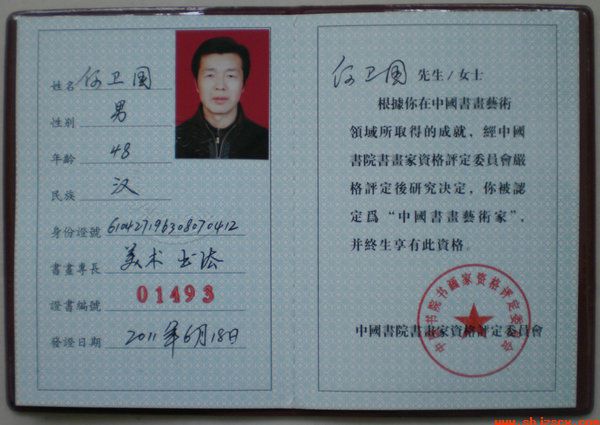 姓名 何卫国
性别 男
年齡 48
民族 汉
身份證號 610427196308070412
書畫專長 美术 书法
證書編號 01493
發證日期 2011年6月18日
何卫国 先生/女士
根據你在中國書畫藝術
領域所取得的成就，經中國
書院書畫家資格評定委員會嚴
格評定後研究決定，你被認
定爲“中國書畫藝術家”，
并終生享有此資格。
中國書院書畫家資格評定委員會
中國书院书画家资格评定委员会